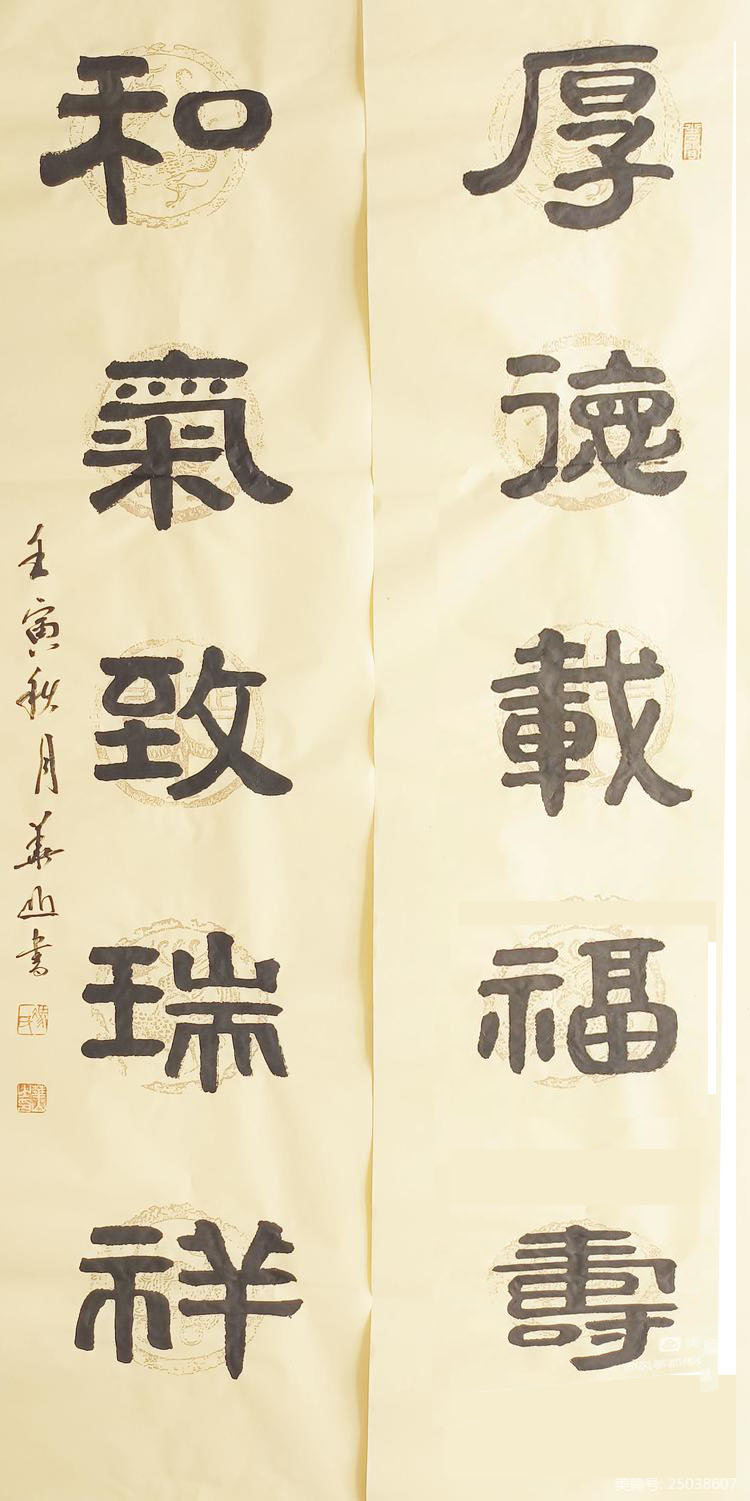 厚德載福壽
和氣致瑞祥
壬寅秋月華山書
美篇号: 25038607